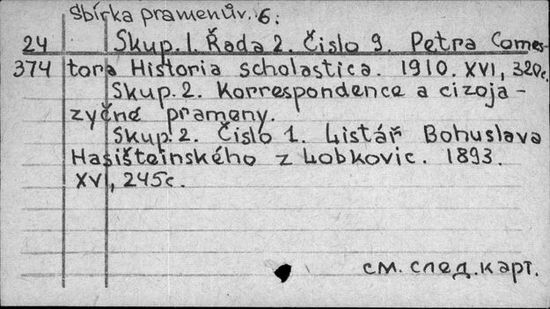 Sbírka pramenův. 6.
24 Skup. I. Řada 2. Čislo 9. Petra Comes-
374 tora Historia scholastica. 1910. XVI, 320c.
Skup. 2. Korrespondence a cizoja-
zyčné prameny.
Skup. 2. Čislo 1. Listář Bohuslava
Hasišteinského z Lobkovic. 1893.
XVI, 245c.
см. след. карт.